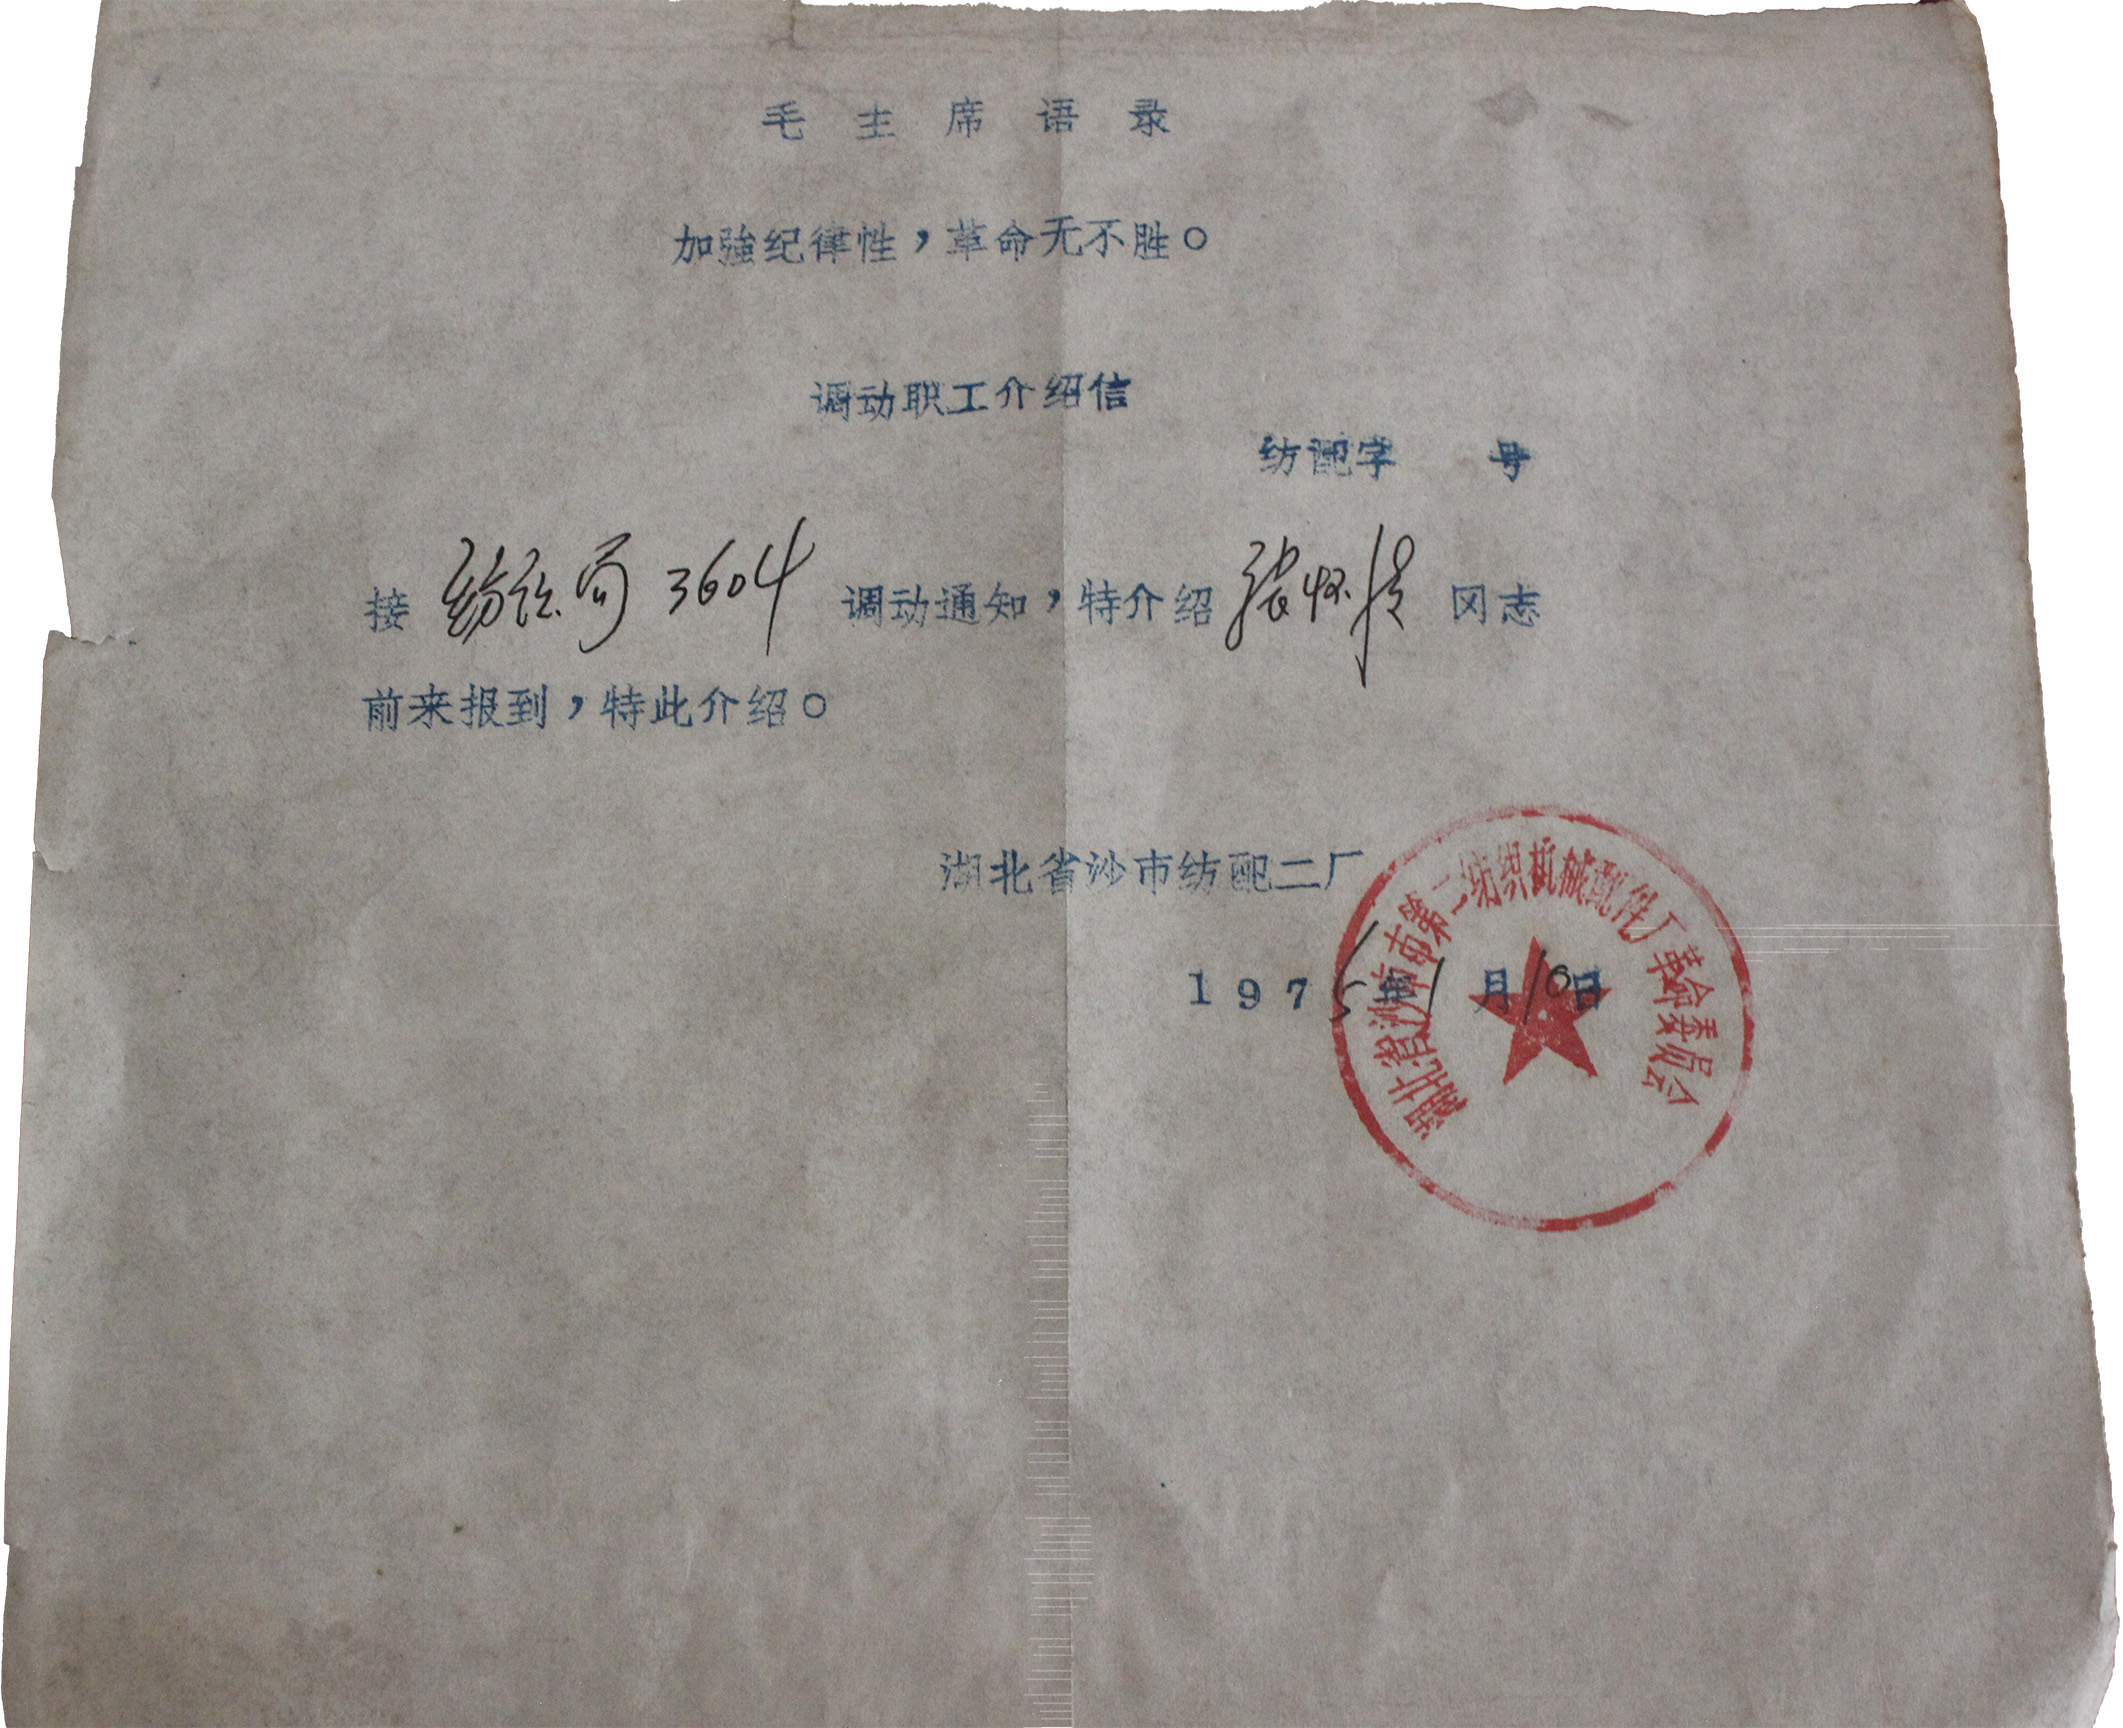 毛主席语录
加強纪律性，革命无不胜。
调动职工介绍信
纺配字 号
接 纺 3604 调动通知，特介绍 张怀 同志
前来报到，特此介绍。
湖北省沙市纺配二厂
1975年1月10日
湖北省沙市市第二纺织机械配件厂革命委员会